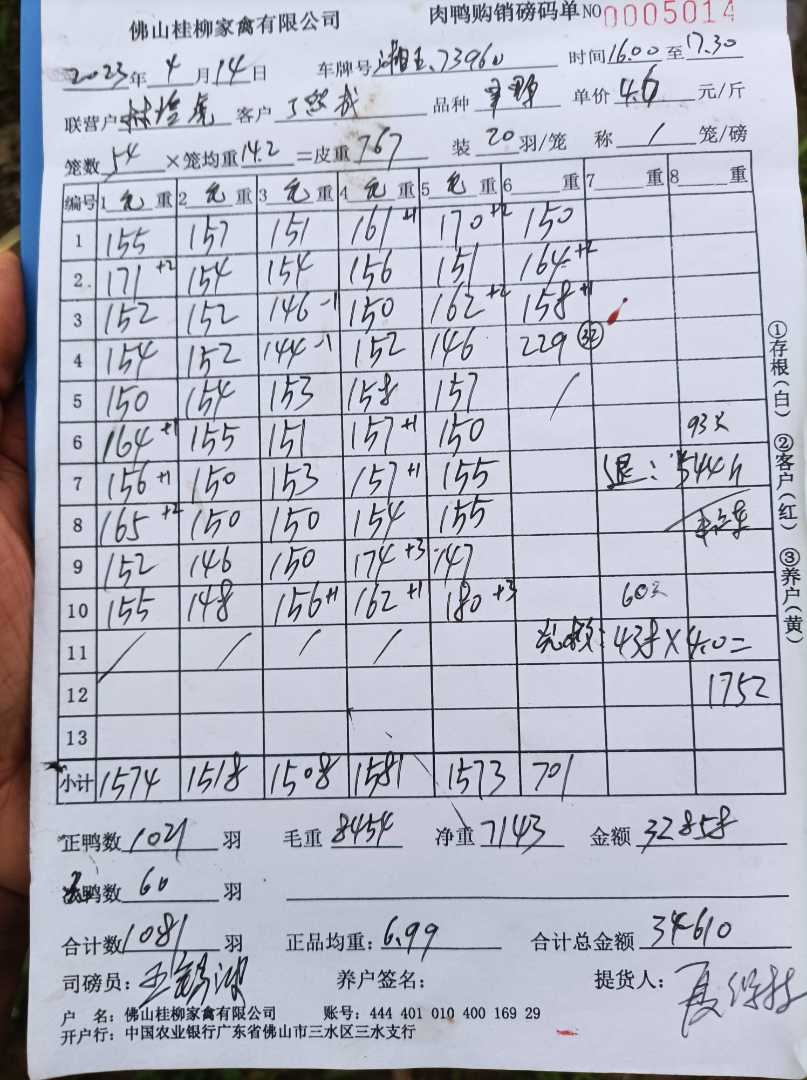 佛山桂柳家禽有限公司 肉鸭购销磅码单 NO 0005014
2023年 4月14日 车牌号 湘E.73960 时间16.00至17.30
联营户 客户 品种 单价 4.6 元/斤
笼数 54 ×笼均重14.2=皮重 767 装 20 羽/笼 称 1 笼/磅
编号 1 重 2 重 3 重 4 重 5 重 6 重 7 重 8 重
1 155 157 151 161+1 170+2 150
2 171+2 154 154 156 151 164+2
3 152 152 146-1 150 162+2 158+1
4 154 152 144-1 152 146 229 32
5 150 154 153 158 157 /
6 164+1 155 151 157+1 150 93只
7 156+1 150 153 157+1 155 退: 544斤
8 165+2 150 150 154 155
9 152 146 150 174+3 147
10 155 148 156+1 162+1 180+3 60只
11 / / / / 438×4.0=
12 1752
13
小计 1574 1518 1508 1581 1573 701
正鸭数 1021 羽 毛重 8454 净重 7143 金额 32858
鸭数 60 羽
合计数 1081 羽 正品均重: 6.99 合计总金额 34610
司磅员: 王锡洪 养户签名: 提货人:
户 名: 佛山桂柳家禽有限公司 账号: 444 401 010 400 169 29
开户行: 中国农业银行广东省佛山市三水区三水支行
①存根(白) ②客户(红) ③养户(黄)